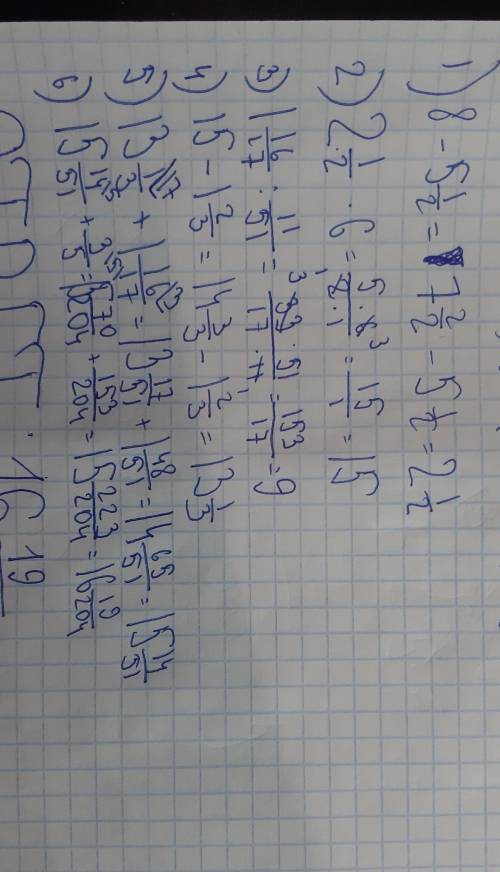 1) 8 - 5 1/2 = 7 2/2 - 5 1/2 = 2 1/2
2) 2 1/2 · 6 = 5·6 3/2·1 1 = 15/1 = 15
3) 1 16/17 : 11/51 = 3 33·51/17·11 1 = 153/17 = 9
4) 15 - 1 2/3 = 14 3/3 - 1 2/3 = 13 1/3
5) 13 1/3 + 1 16/17 = 13 17/51 + 1 48/51 = 14 65/51 = 15 14/51
6) 15 14/51 + 3/5 = 15 70/204 + 153/204 = 15 223/204 = 16 19/204
16 19